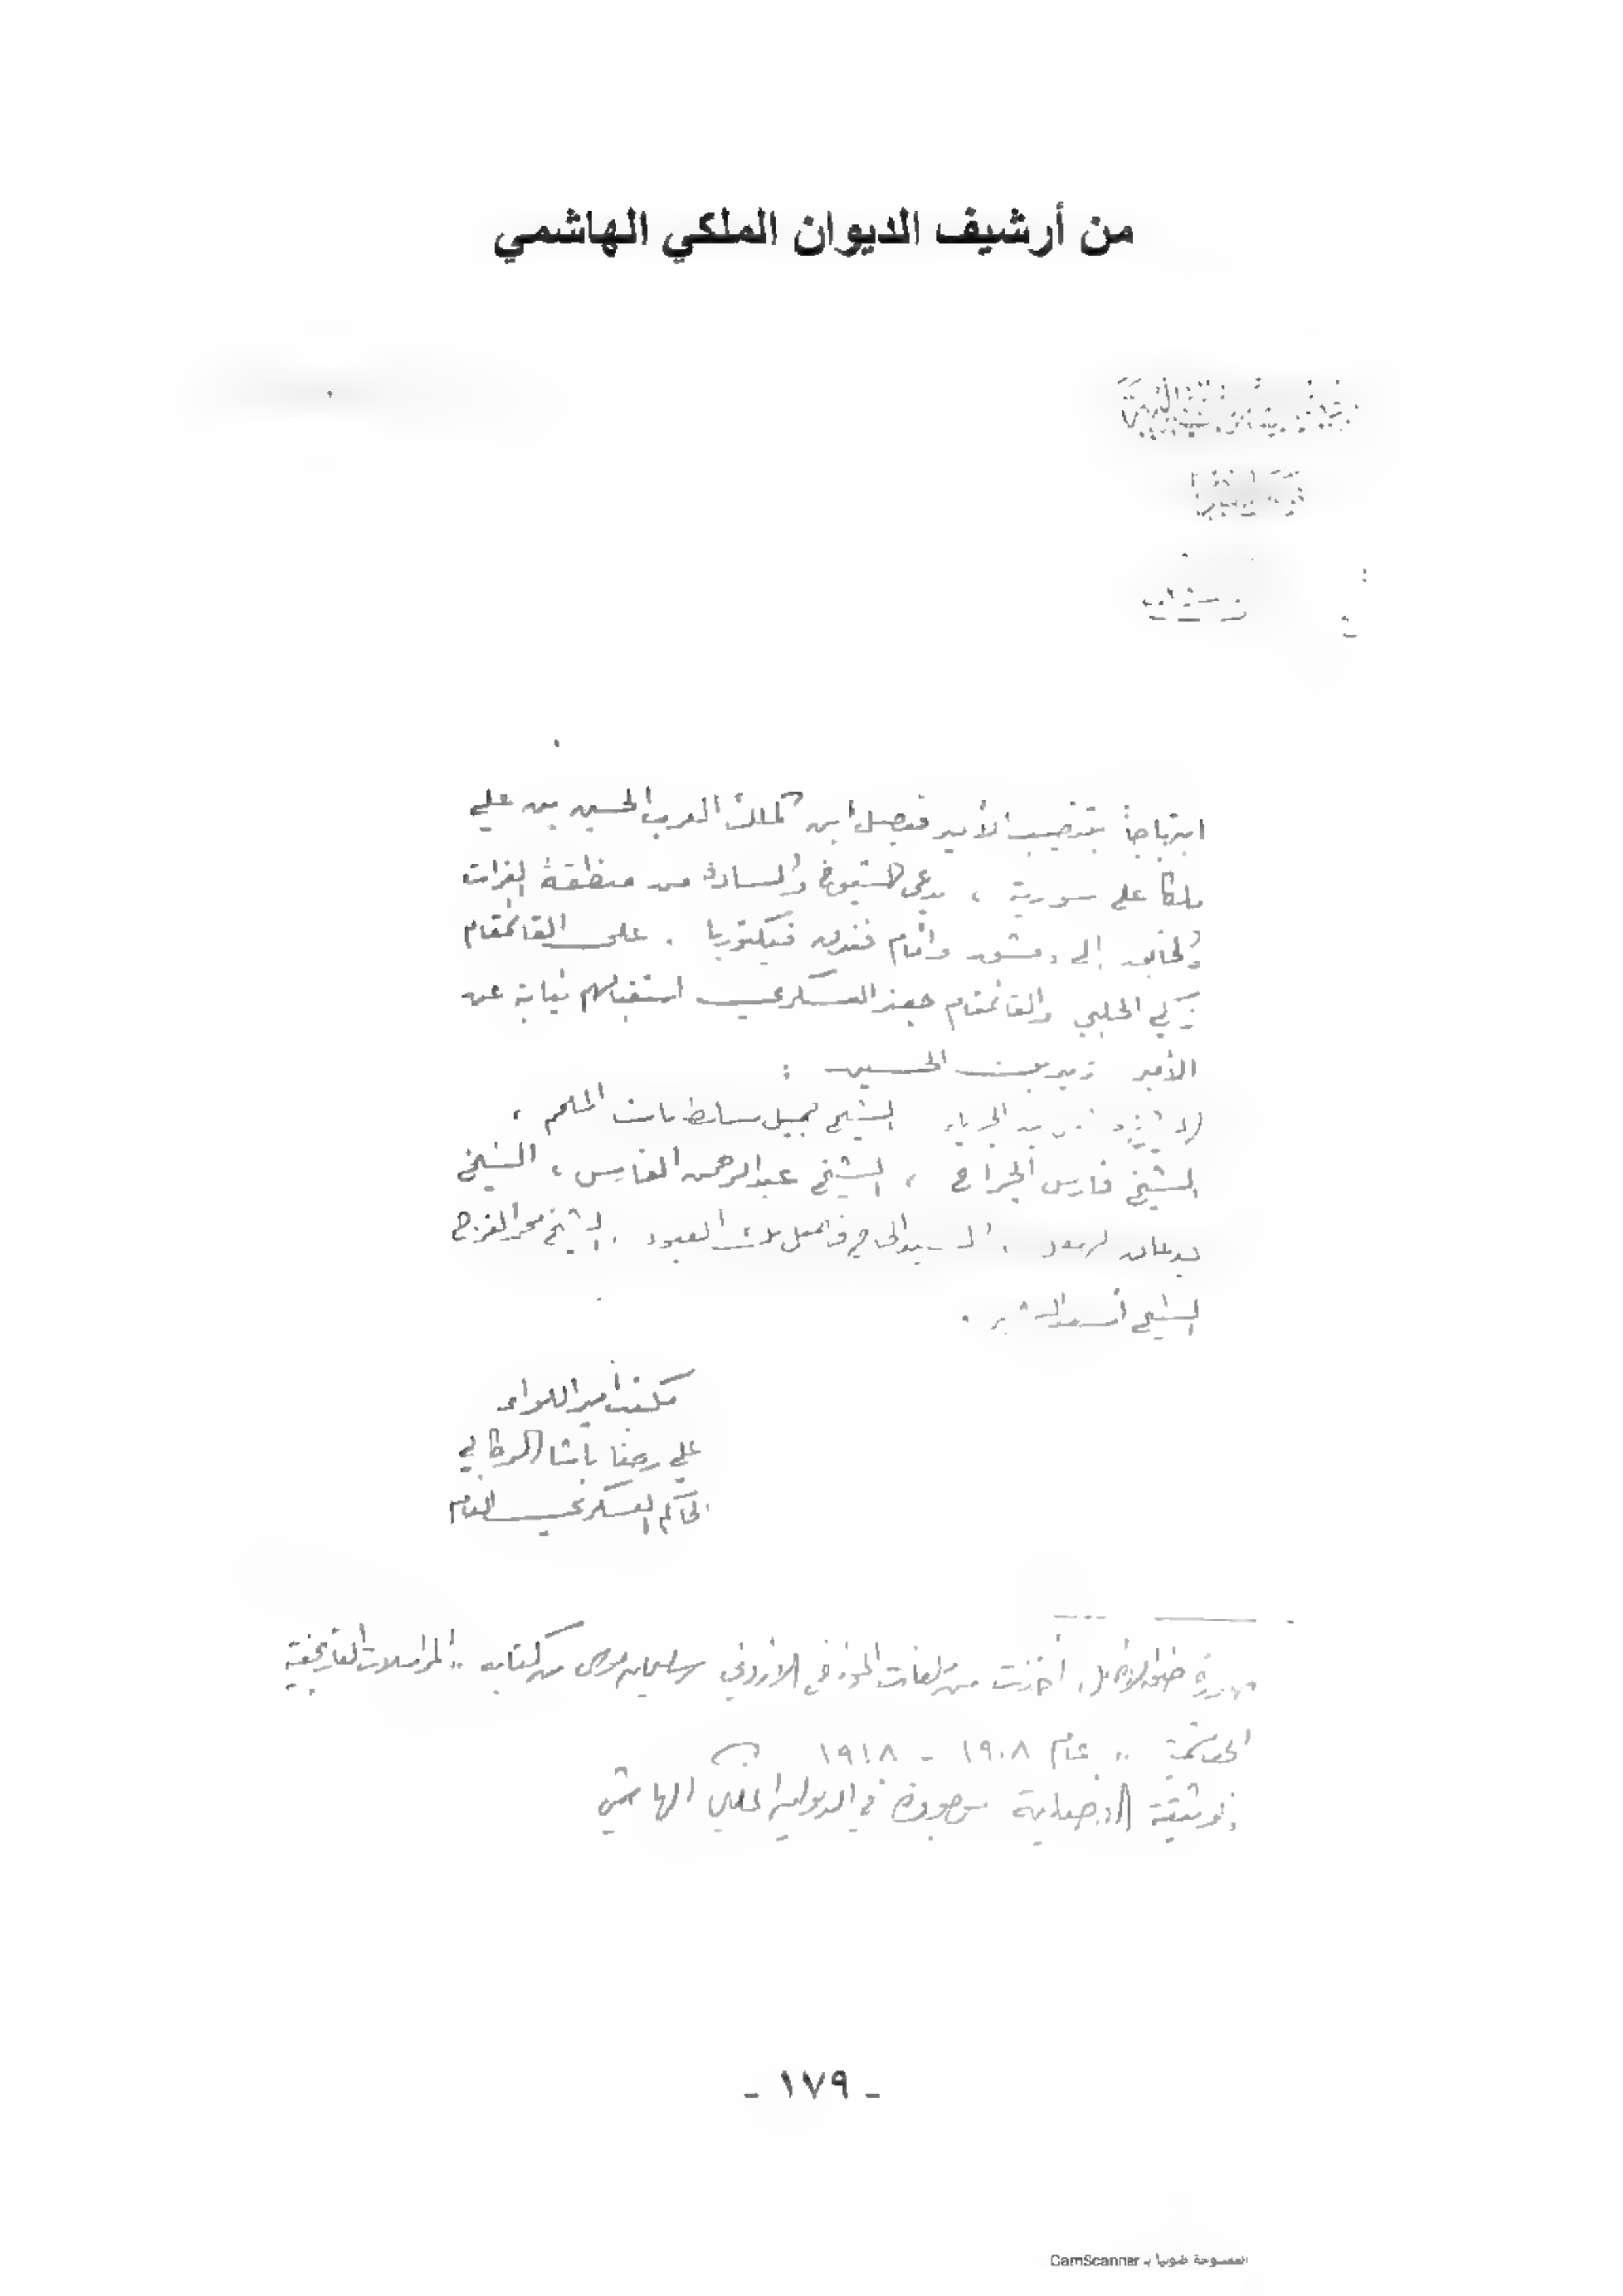 من أرشيف الديوان الملكي الهاشمي
ابتهاجاً بتنصيب الأمير فيصل ابن ملك العرب الحسين بن علي
ملكاً على سورية ، يدعى الشيوخ والسادة من منطقة الفرات
والخابور إلى دمشق وأمام فندق فيكتوريا . على القائمقام
زكي الحلبي والقائمقام جعفر العسكري استقبالهم نيابة عن
الأمير زيد بن الحسين :
الشيخ جميل سلطان الملحم ،
الشيخ فارس الجراح ، الشيخ عبدالرحمن الفارس ، الشيخ
السيد الحاج فاضل العبود . الشيخ محمد الفرج
الشيخ
مكتب أمير اللواء
علي رضا باشا الركابي
الحاكم العسكري العام
صورة طبق الأصل أخذت من مؤلفات المؤرخ الأردني سليمان موسى من كتابه " المراسلات التاريخية
عام ١٩٠٨ - ١٩١٨
الوثيقة الأصلية موجودة في الديوان الملكي الهاشمي
- ١٧٩ -
الممسوحة ضوئيا بـ CamScanner